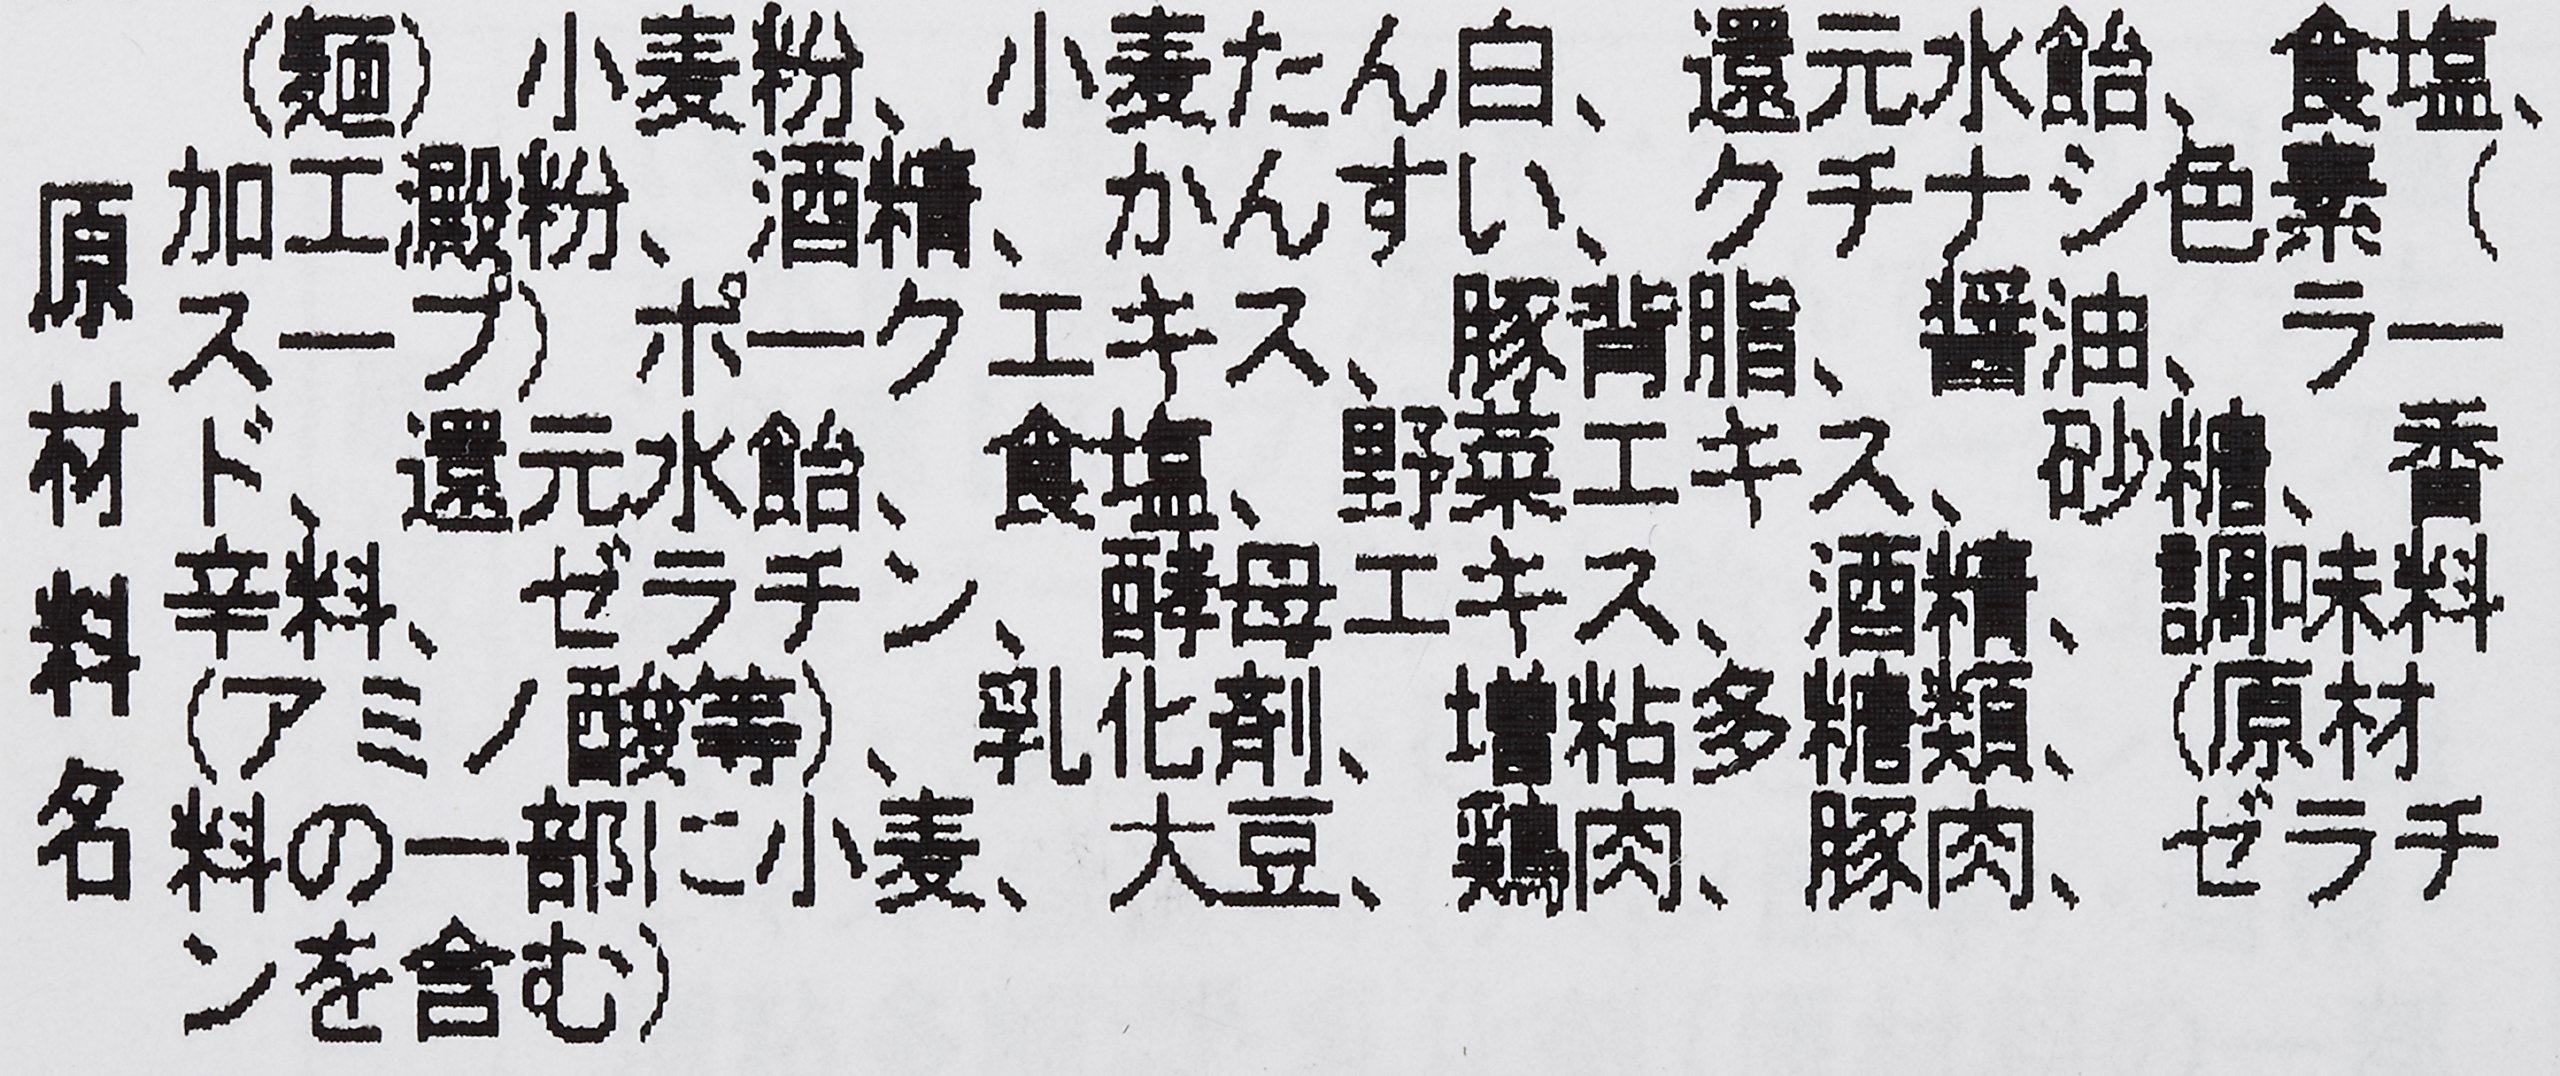 原材料名
(麺) 小麦粉、小麦たん白、還元水飴、食塩、
加工澱粉、酒精、かんすい、クチナシ色素 (
スープ) ポークエキス、豚背脂、醤油、ラー
ド、還元水飴、食塩、野菜エキス、砂糖、香
辛料、ゼラチン、酵母エキス、酒精、調味料
(アミノ酸等)、乳化剤、増粘多糖類、(原材
料の一部に小麦、大豆、鶏肉、豚肉、ゼラチ
ンを含む)